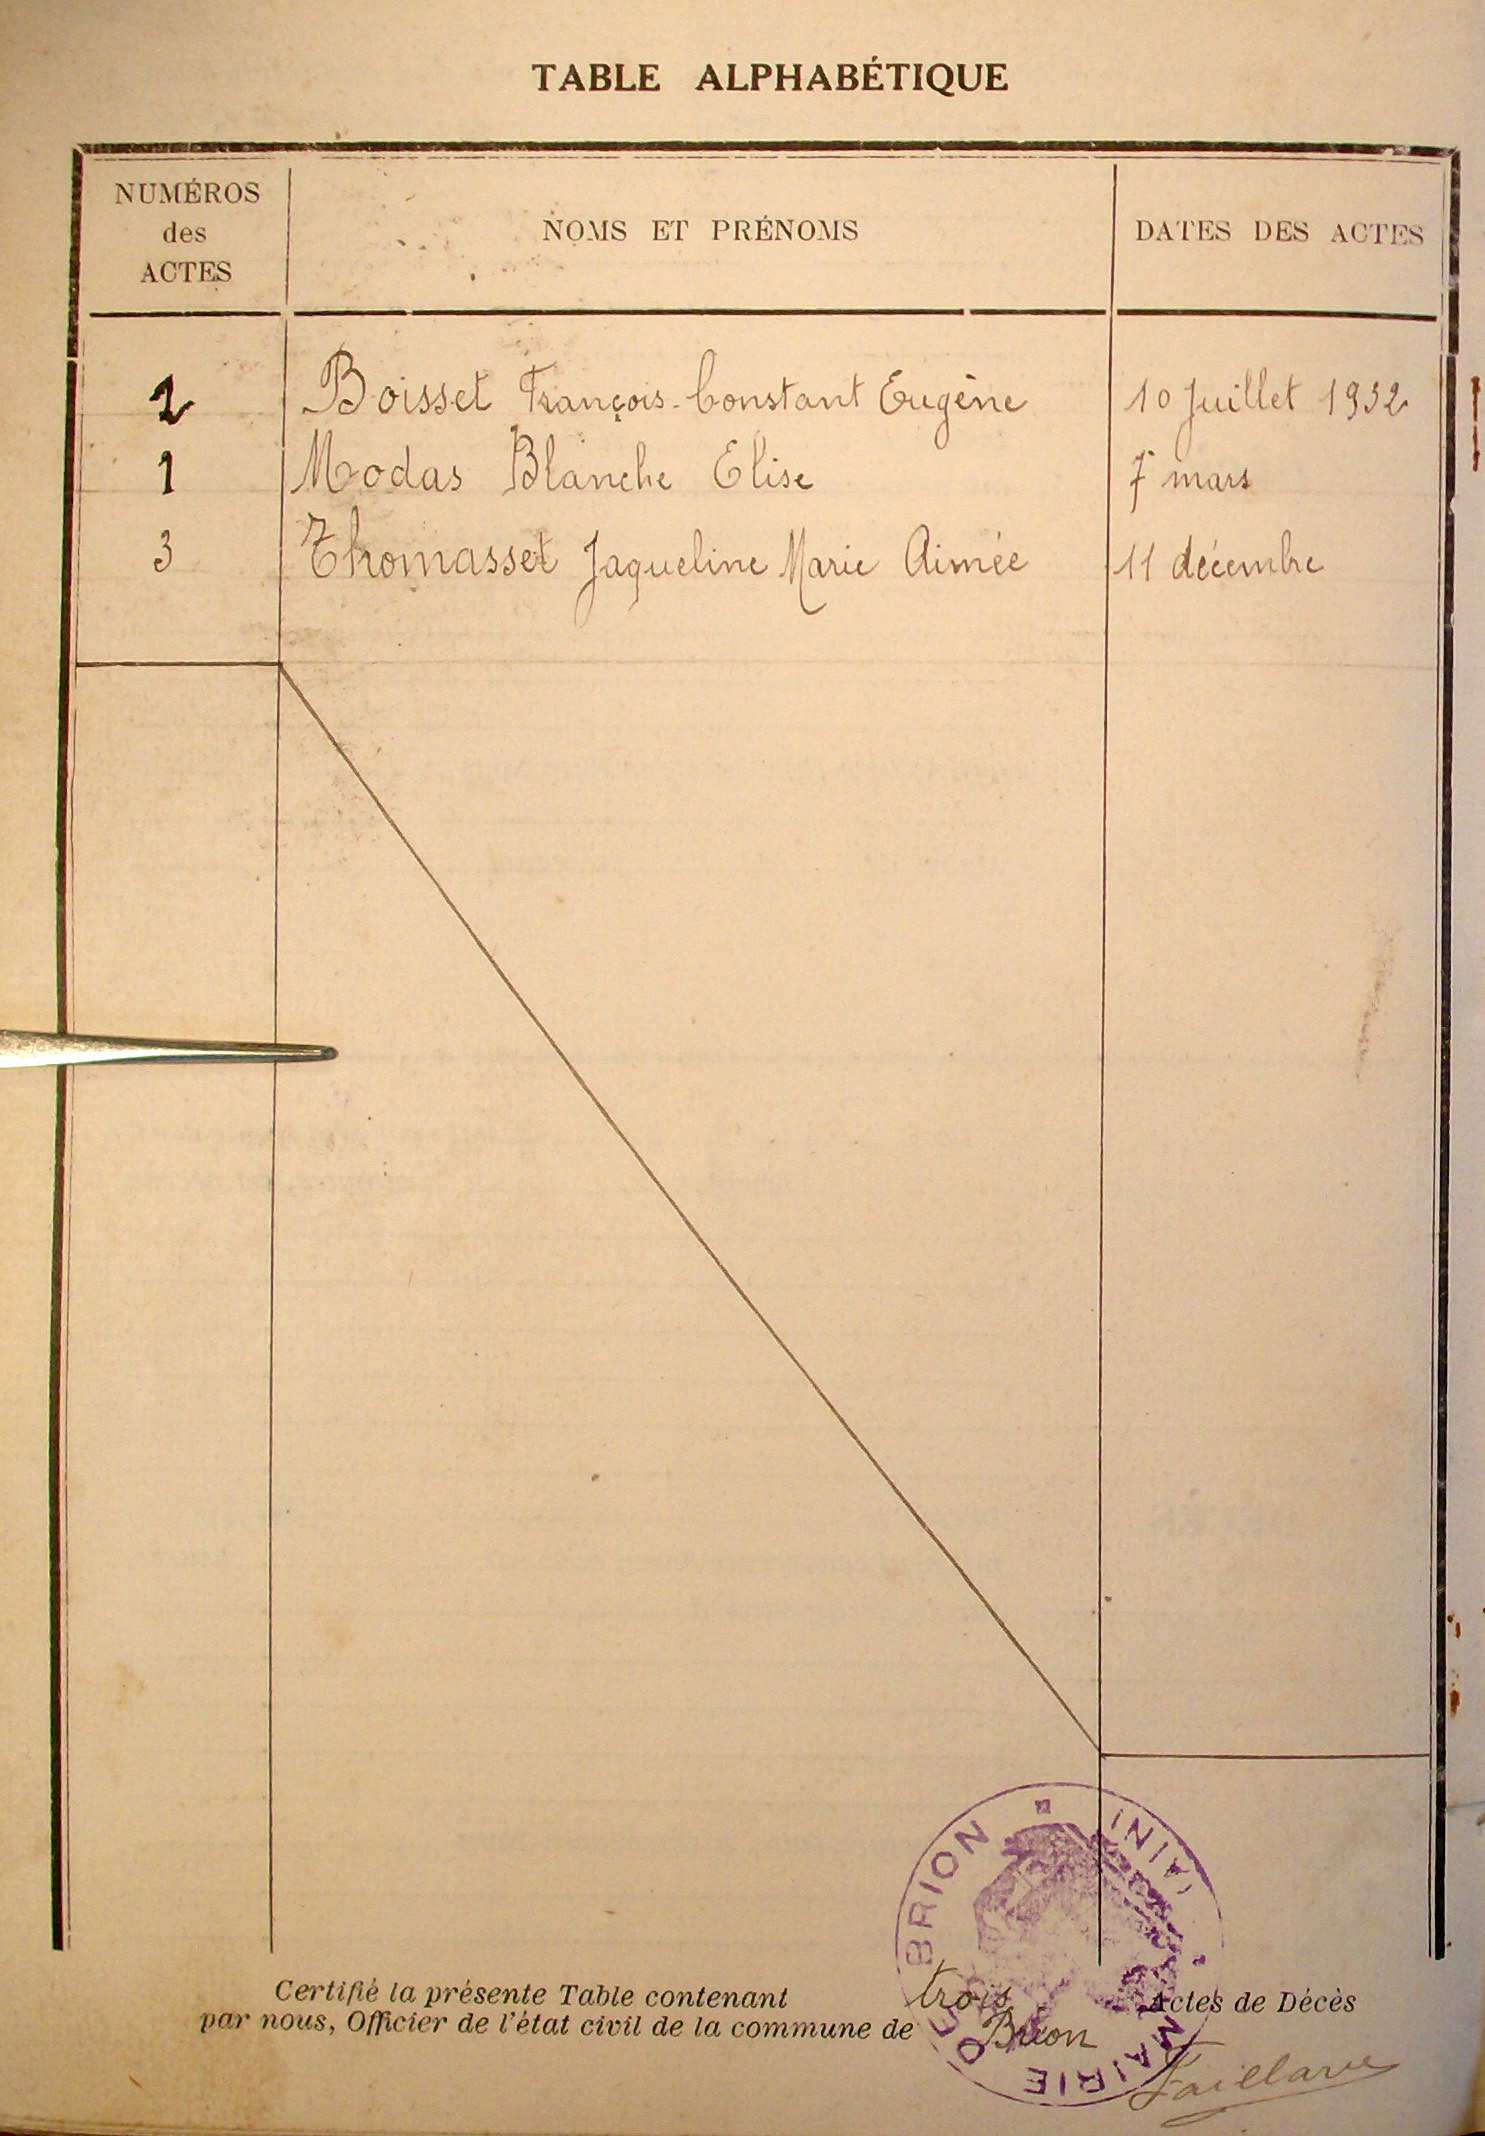 TABLE ALPHABÉTIQUE
NUMÉROS
des
ACTES
NOMS ET PRÉNOMS
DATES DES ACTES
2 Boisset François-Constant Eugène 10 Juillet 1932
1 Modas Blanche Elise 7 mars
3 Thomasset Jaqueline Marie Aimée 11 décembre
Certifié la présente Table contenant trois Actes de Décès
par nous, Officier de l'état civil de la commune de Brion
MAIRIE DE BRION